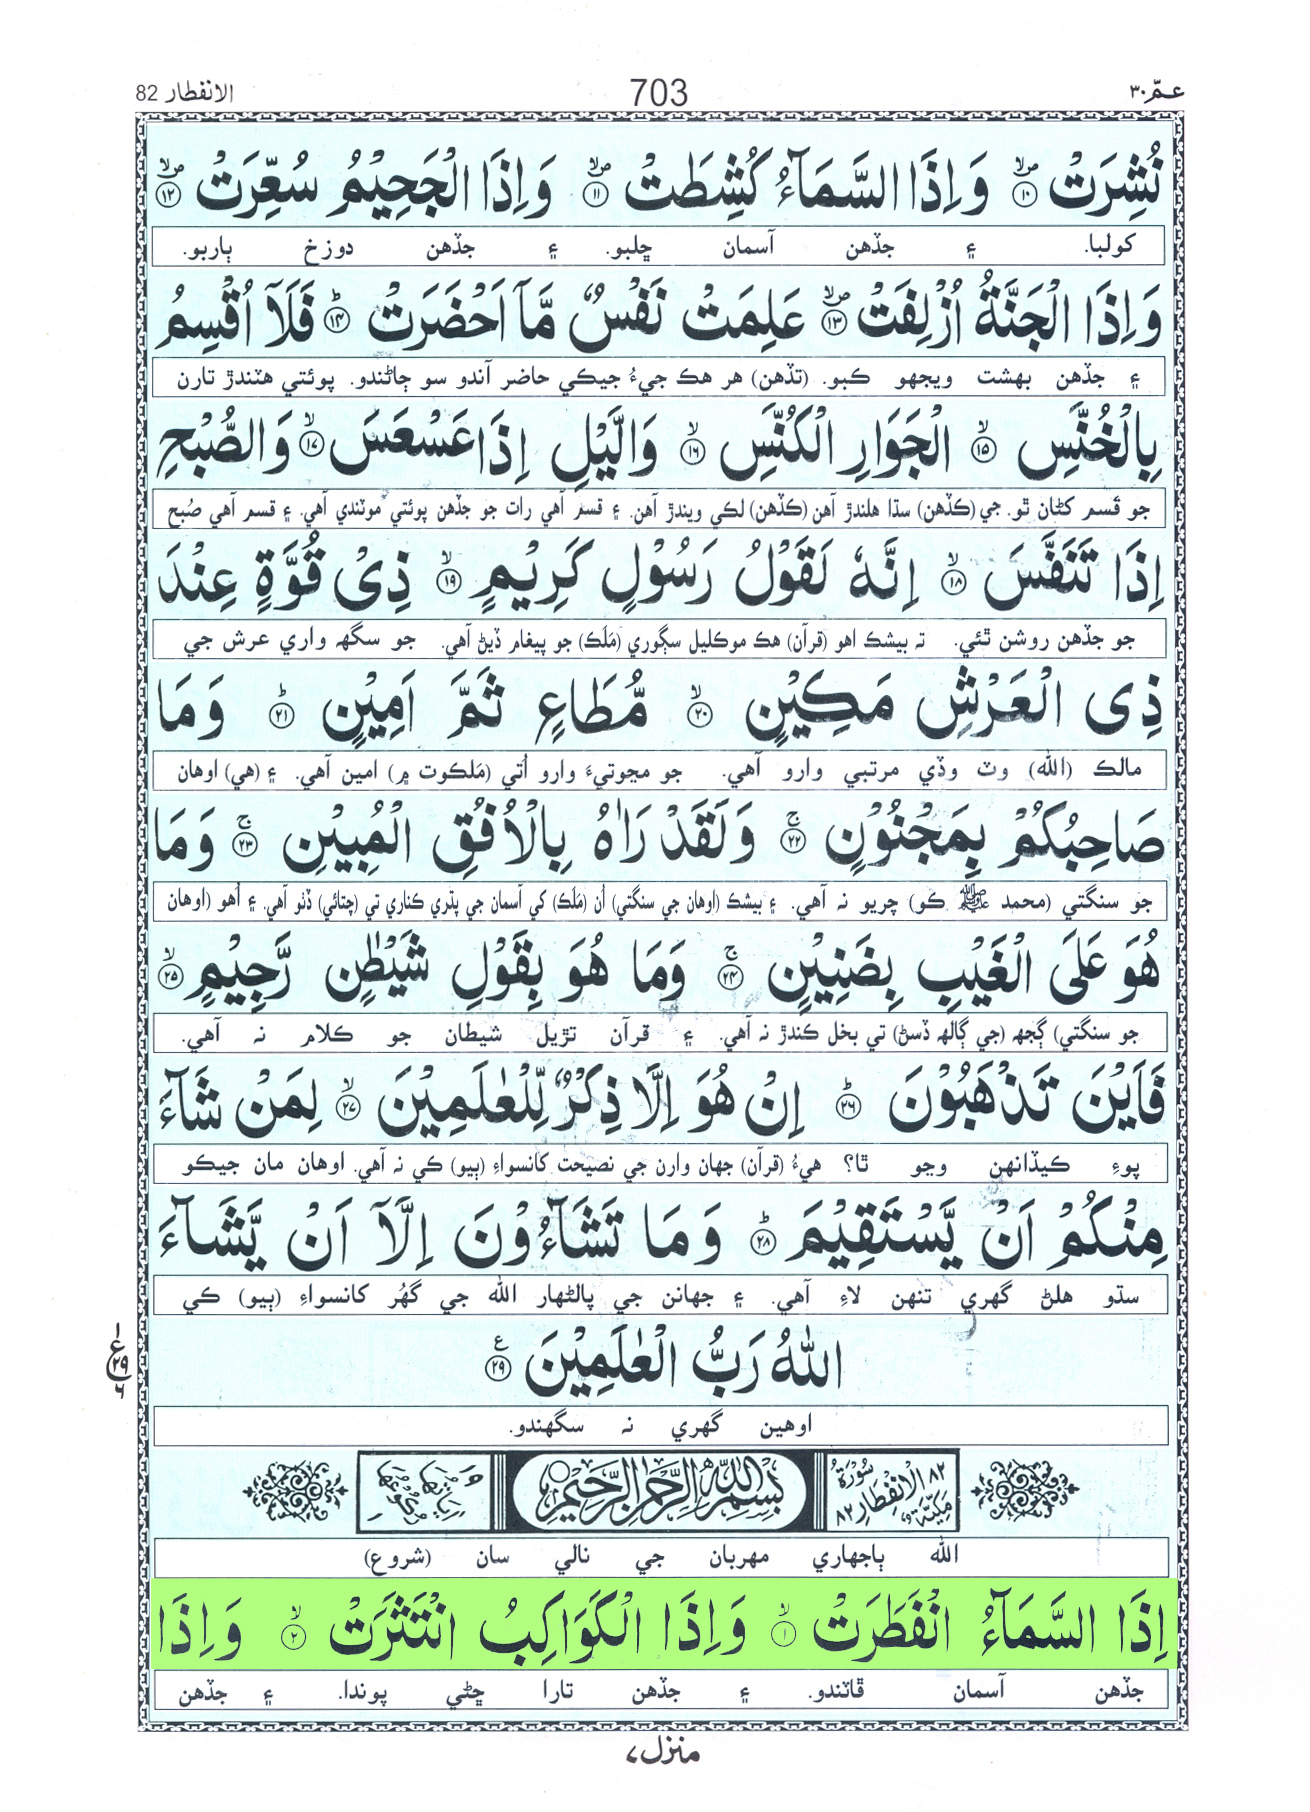 عمّ ۳۰ 703 الانفطار 82
نُشِرَتْ ۝۱۰ وَاِذَا السَّمَآءُ كُشِطَتْ ۝۱۱ وَاِذَا الْجَحِيْمُ سُعِّرَتْ ۝۱۲
کولبا. ۽ جڏهن آسمان ڇلبو. ۽ جڏهن دوزخ ٻاربو.
وَاِذَا الْجَنَّةُ اُزْلِفَتْ ۝۱۳ عَلِمَتْ نَفْسٌ مَّاۤ اَحْضَرَتْ ۝۱۴ فَلَاۤ اُقْسِمُ
۽ جڏهن بهشت ويجهو ڪبو. (تڏهن) هر هڪ جيءُ جيڪي حاضر آندو سو ڄاڻندو. پوئتي هٽندڙ تارن
بِالْخُنَّسِ ۝۱۵ الْجَوَارِ الْكُنَّسِ ۝۱۶ وَالَّيْلِ اِذَا عَسْعَسَ ۝۱۷ وَالصُّبْحِ
جو قسم کڻان ٿو. جي (ڪڏهن) سڌا هلندڙ آهن (ڪڏهن) لڪي ويندڙ آهن. ۽ قسم آهي رات جو جڏهن پوئتي موٽندي آهي. ۽ قسم آهي صُبح
اِذَا تَنَفَّسَ ۝۱۸ اِنَّهٗ لَقَوْلُ رَسُوْلٍ كَرِيْمٍ ۝۱۹ ذِىْ قُوَّةٍ عِنْدَ
جو جڏهن روشن ٿئي. ته بيشڪ اهو (قرآن) هڪ موڪليل سڳوري (مَلَڪ) جو پيغام ڏيڻ آهي. جو سگهه واري عرش جي
ذِى الْعَرْشِ مَكِيْنٍ ۝۲۰ مُّطَاعٍ ثَمَّ اَمِيْنٍ ۝۲۱ وَمَا
مالڪ (الله) وٽ وڏي مرتبي وارو آهي. جو مڃوتيءَ وارو اُتي (مَلڪوت ۾) امين آهي. ۽ (هي) اوهان
صَاحِبُكُمْ بِمَجْنُوْنٍ ۝۲۲ وَلَقَدْ رَاٰهُ بِالْاُفُقِ الْمُبِيْنِ ۝۲۳ وَمَا
جو سنگتي (محمد ﷺ ڪو) چريو نه آهي. ۽ بيشڪ (اوهان جي سنگتي) اُن (مَلَڪ) کي آسمان جي پڌري ڪناري تي (چتائي) ڏٺو آهي. ۽ اُهو (اوهان
هُوَ عَلَى الْغَيْبِ بِضَنِيْنٍ ۝۲۴ وَمَا هُوَ بِقَوْلِ شَيْطٰنٍ رَّجِيْمٍ ۝۲۵
جو سنگتي) ڳجهه (جي ڳالهه ڏسڻ) تي بخل ڪندڙ نه آهي. ۽ قرآن تڙيل شيطان جو ڪلام نه آهي.
فَاَيْنَ تَذْهَبُوْنَ ۝۲۶ اِنْ هُوَ اِلَّا ذِكْرٌ لِّلْعٰلَمِيْنَ ۝۲۷ لِمَنْ شَآءَ
پوءِ ڪيڏانهن وڃو ٿا؟ هيءُ (قرآن) جهان وارن جي نصيحت کانسواءِ (ٻيو) ڪي نه آهي. اوهان مان جيڪو
مِنْكُمْ اَنْ يَّسْتَقِيْمَ ۝۲۸ وَمَا تَشَآءُوْنَ اِلَّاۤ اَنْ يَّشَآءَ
سڌو هلڻ گهري تنهن لاءِ آهي. ۽ جهانن جي پالڻهار الله جي گهُر کانسواءِ (ٻيو) ڪي
اللّٰهُ رَبُّ الْعٰلَمِيْنَ ۝۲۹
اوهين گهري نه سگهندو.
۸۲ سُوْرَةُ الْاِنْفِطَارِ مَكِّيَّةٌ ۸۲ بِسْمِ اللهِ الرَّحْمٰنِ الرَّحِيْمِ
الله ٻاجهاري مهربان جي نالي سان (شروع)
اِذَا السَّمَآءُ انْفَطَرَتْ ۝۱ وَاِذَا الْكَوَاكِبُ انْتَثَرَتْ ۝۲ وَاِذَا
جڏهن آسمان ڦاٽندو. ۽ جڏهن تارا ڇڻي پوندا. ۽ جڏهن
منزل ۷